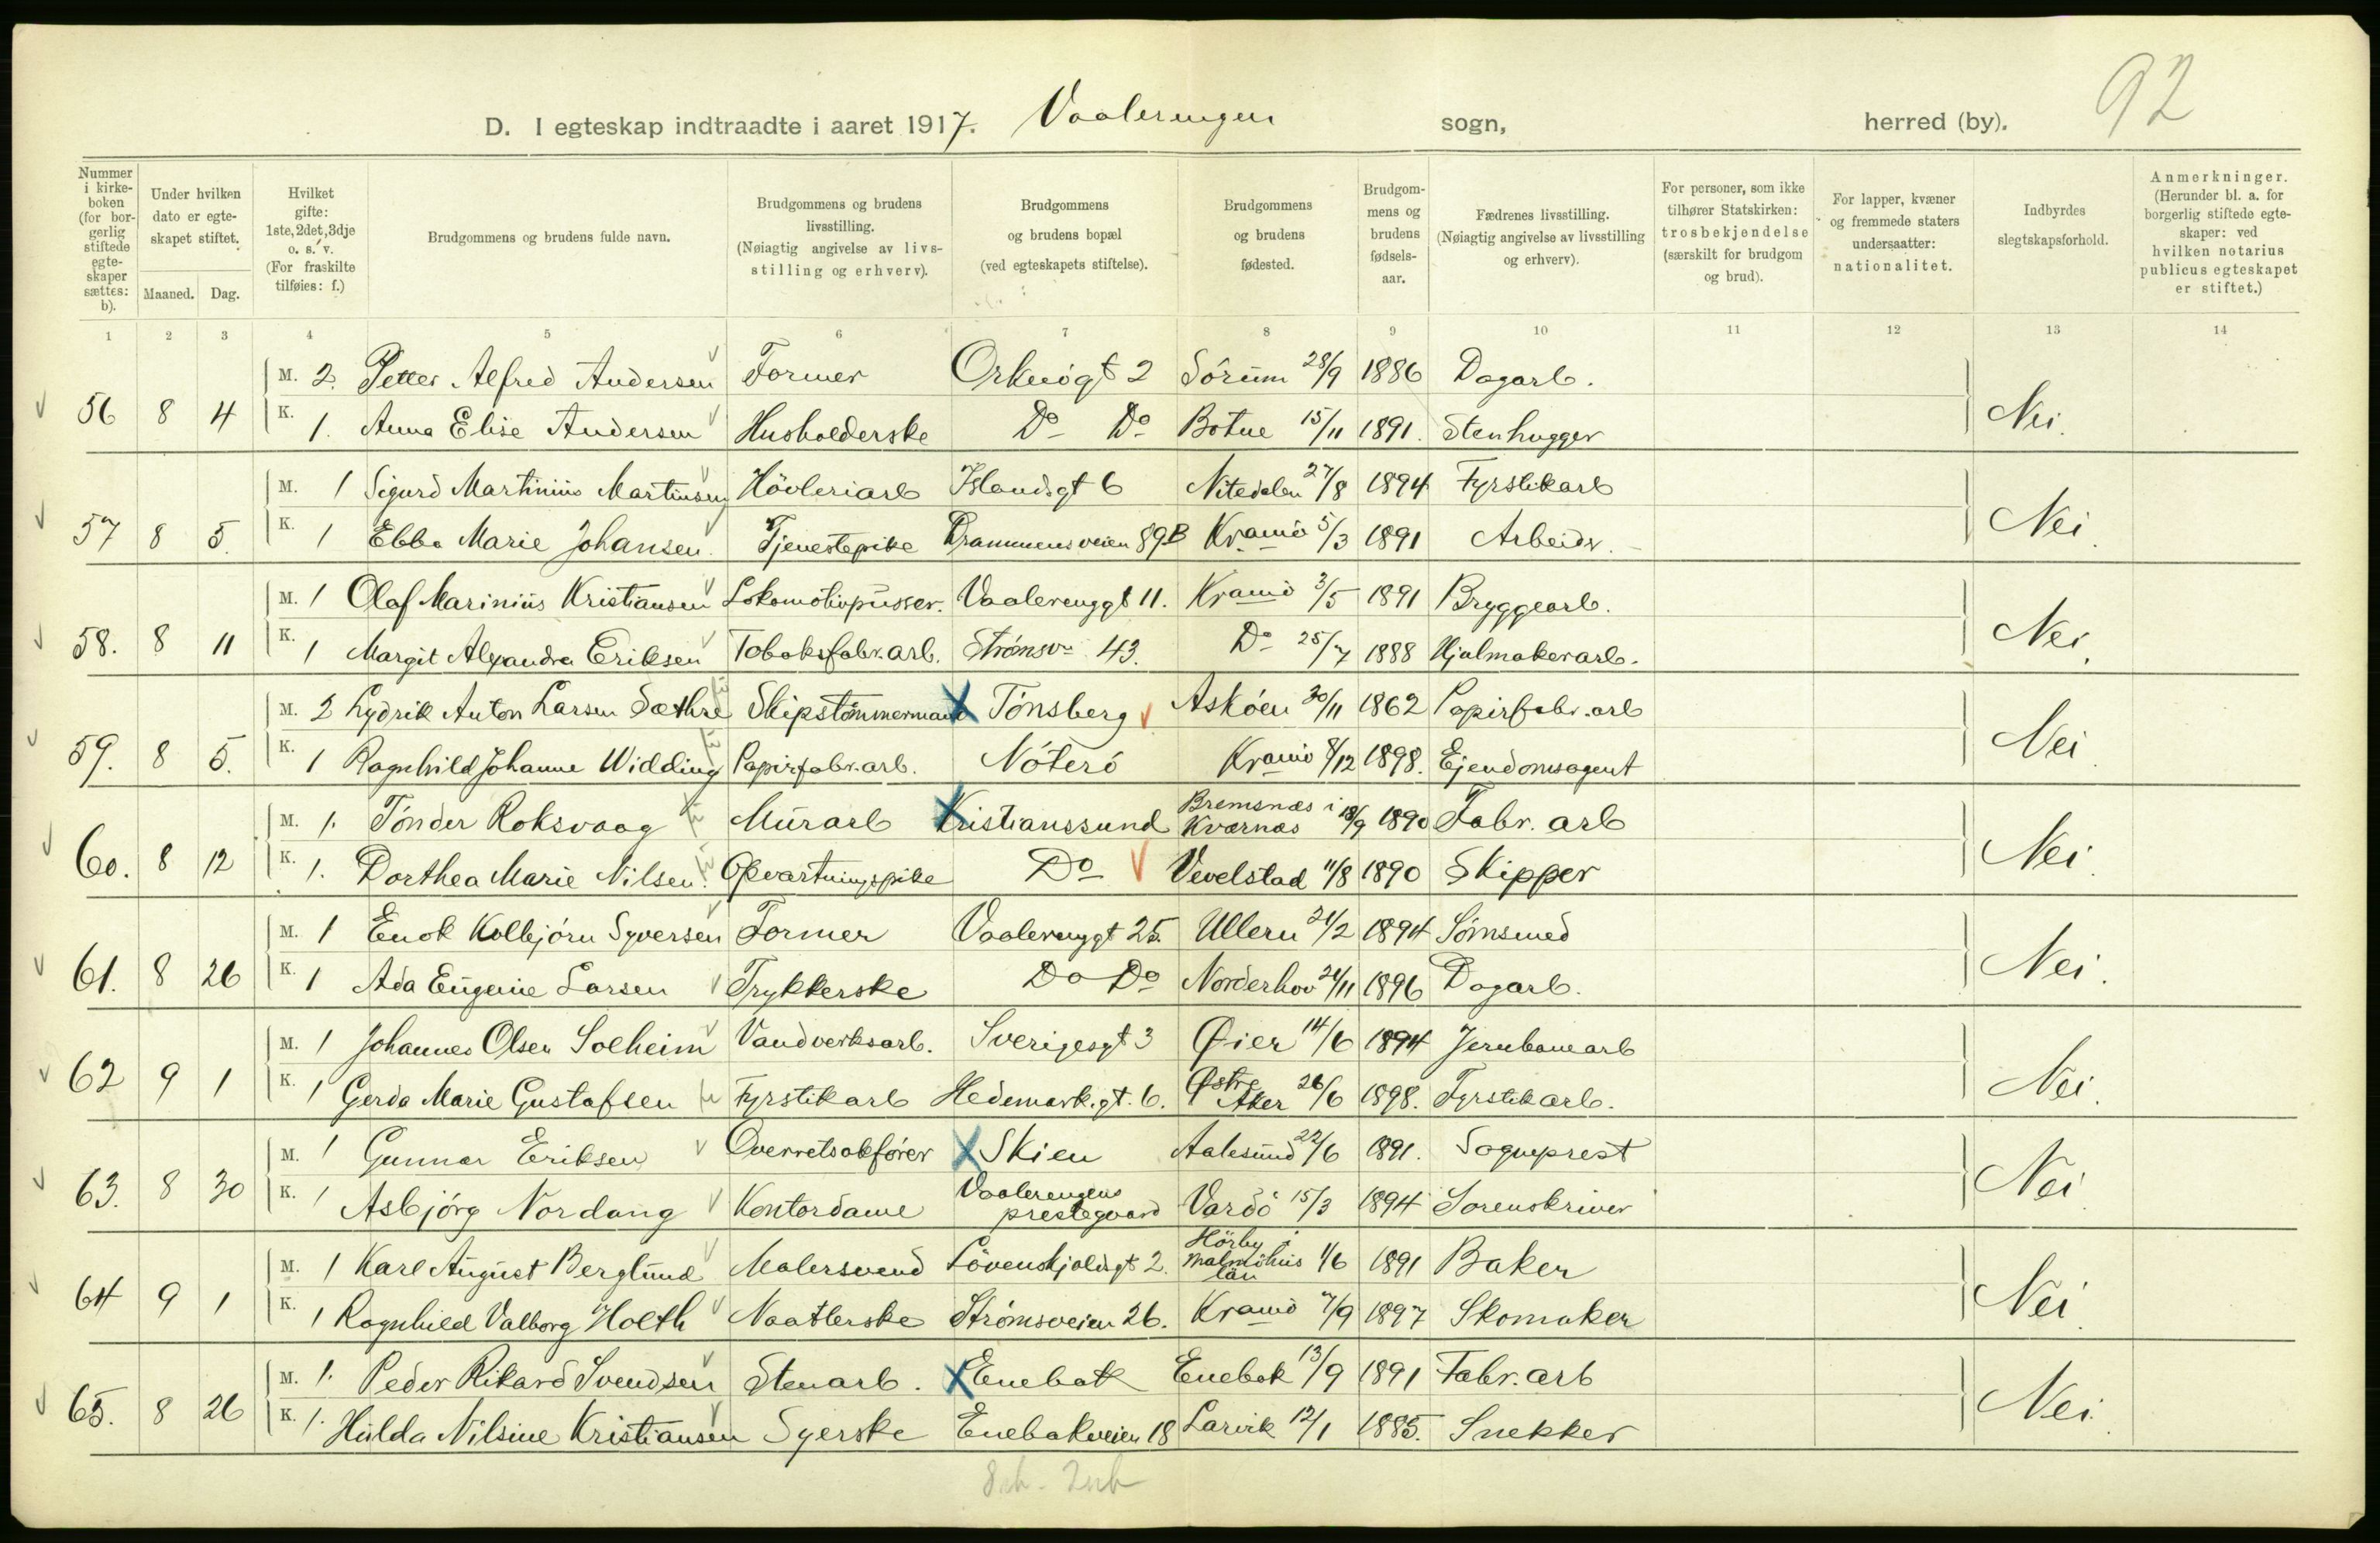 92
D. I egteskap indtraadte i aaret 1917. Vaalerengen sogn, herred (by).
Nummer i kirkeboken (for borgerlig stiftede egteskaper sættes: b).
Under hvilken dato er egteskapet stiftet.
Maaned. Dag.
Hvilket gifte: 1ste, 2det, 3dje o. s. v. (For fraskilte tilføies: f.)
Brudgommens og brudens fulde navn.
Brudgommens og brudens livsstilling. (Nøiagtig angivelse av livsstilling og erhverv).
Brudgommens og brudens bopæl (ved egteskapets stiftelse).
Brudgommens og brudens fødested.
Brudgommens og brudens fødselsaar.
Fædrenes livsstilling. (Nøiagtig angivelse av livsstilling og erhverv).
For personer, som ikke tilhører Statskirken: trosbekjendelse (særskilt for brudgom og brud).
For lapper, kvæner og fremmede staters undersaatter: nationalitet.
Indbyrdes slegtskapsforhold.
Anmerkninger. (Herunder bl. a. for borgerlig stiftede egteskaper: ved hvilken notarius publicus egteskapet er stiftet.)
1 2 3 4 5 6 7 8 9 10 11 12 13 14
M. 2. Petter Alfred Andersen Former Orknögt 2 Sörum 28/9 1886 Dagarb.
56 8 4 K. 1. Anna Elise Andersen Husholderske Do Do Botne 15/11 1891. Stenhugger Nei.
M. 1 Sigurd Martinius Martinsen Hövleriarb Islandsgt 6 Nitedalen 27/8 1894 Fyrstikarb
57 8 5. K. 1 Ebba Marie Johansen. Tjenestepike Drammensveien 89B Kramö 5/3 1891 Arbeider. Nei.
M. 1 Olaf Marinius Kristiansen Lokomotivpusser. Vaalerenggt 11. Kramö 3/5 1891 Bryggearb.
58. 8 11 K. 1 Margit Alexandra Eriksen Tobaksfabr.arb. Strömsvn 43. Do 25/7 1888 Hjulmakerarb. Nei.
M. 2 Lydrik Anton Larsen Sæthre Skipstömmermand Tönsberg Asköen 30/11 1862 Papirfabr.arb
59. 8 5. K. 1 Ragnhild Johanne Widding Papirfabr.arb. Nöterö Kramö 8/12 1898. Ejendomsagent Nei
M. 1. Tönder Roksvaag Murarb Kristianssund Bremsnæs i Kværnæs 18/9 1890 Fabr. arb
60. 8 12 K. 1. Dorthea Marie Nilsen. Opvartningspike Do Vevelstad 11/8 1890 Skipper Nei.
M. 1 Enok Kolbjörn Syversen Former Vaalerenggt 25. Ullern 21/2 1894 Sömsmed
61. 8 26 K. 1 Ada Eugenie Larsen Trykkerske Do Do Norderhov 24/11 1896 Dagarb. Nei.
M. 1 Johannes Olsen Solheim Vandverksarb. Sverigesgt 3 Øier 14/6 1894 Jernbanearb
62 9 1 K. 1 Gerda Marie Gustafsen Fyrstikarb Hedemark.gt. 6. Østre Aker 26/6 1898. Fyrstikarb. Nei.
M. 1 Gunnar Eriksen Overretssakförer Skien Aalesund 22/6 1891. Sogneprest
63. 8 30 K. 1 Asbjörg Nordang Kontordame Vaalerengens prestegaard Vardö 15/3 1894 Sorenskriver Nei
M. 1 Karl August Berglund Malersvend Lövenskjoldsgt 2. Hörby i Malmöhus län 1/6 1891 Baker
64 9 1 K. 1 Ragnhild Valborg Holth Naatlerske Strömsveien 26. Kramö 7/9 1897 Skomaker Nei.
M. 1. Peder Rikard Svendsen Stenarb. Enebak Enebak 13/9 1891 Fabr.arb
65. 8 26 K. 1. Hulda Nilsine Kristiansen Syerske Enebakveien 18 Larvik 12/1 1885. Snekker Nei.